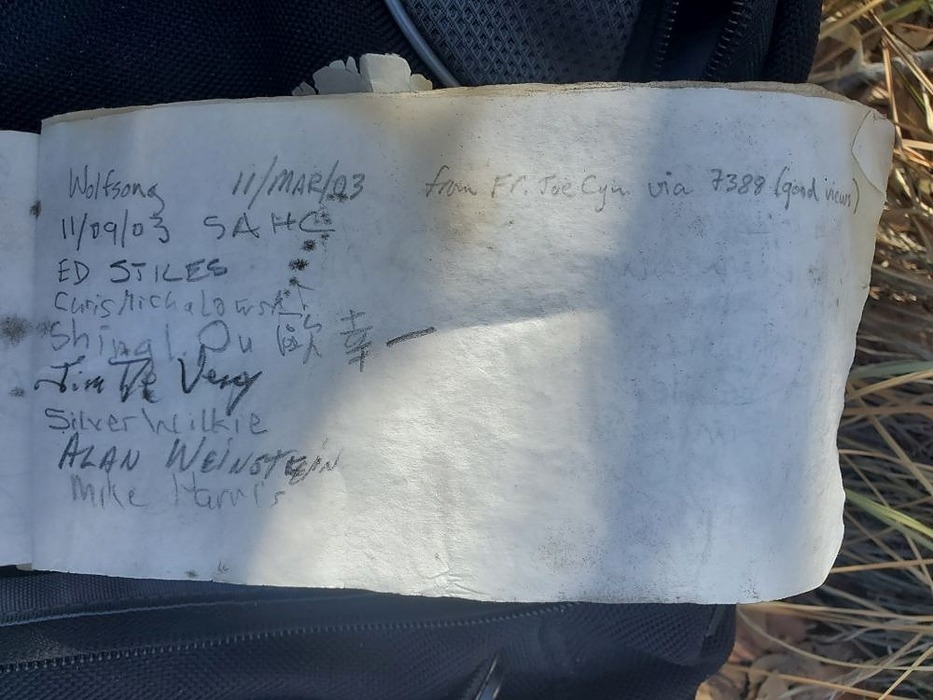 Wolfsong 11/MAR/03 from Fr. Joe Cyn. via 7388 (good views)
11/09/03 SAHC
ED STILES
Chris Michalowski
Shing1. Ou 歐 幸一
Jim De Veny
Silver Wilkie
ALAN WEINSTEIN
Mike Harris